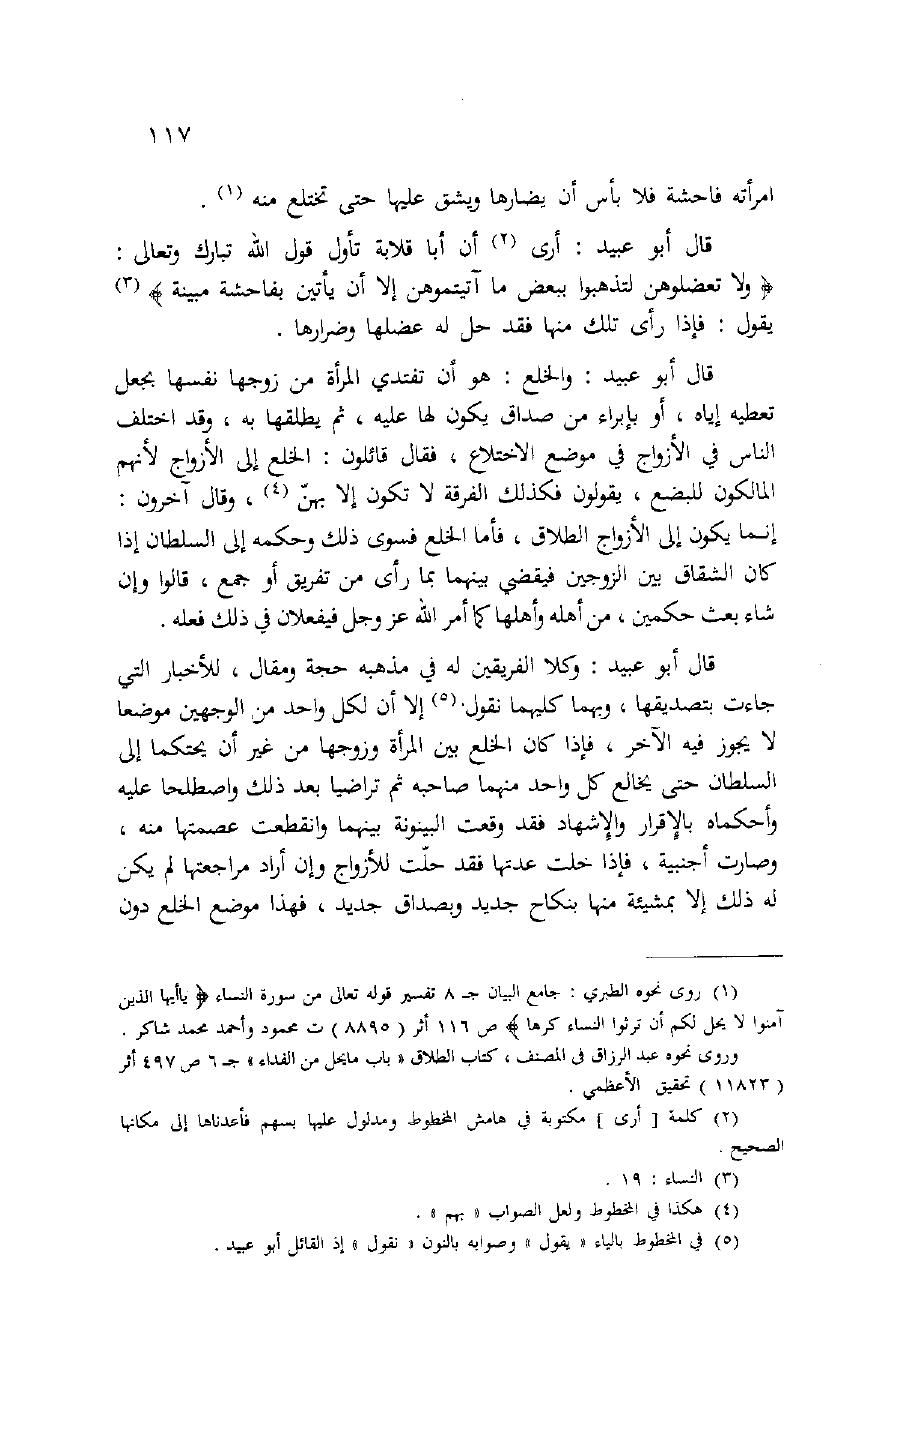 ١١٧
امرأته فاحشة فلا بأس أن يضارها ويشق عليها حتى تختلع منه (١) .
قال أبو عبيد : أرى (٢) أن أبا قلابة تأول قول الله تبارك وتعالى :
﴿ ولا تعضلوهن لتذهبوا ببعض ما آتيتموهن إلا أن يأتين بفاحشة مبينة ﴾ (٣)
يقول : فإذا رأى تلك منها فقد حل له عضلها وضرارها .
قال أبو عبيد : والخلع : هو أن تفتدي المرأة من زوجها نفسها بجعل
تعطيه إياه ، أو بإبراء من صداق يكون لها عليه ، ثم يطلقها به ، وقد اختلف
الناس في الأزواج في موضع الاختلاع ، فقال قائلون : الخلع إلى الأزواج لأنهم
المالكون للبضع ، يقولون فكذلك الفرقة لا تكون إلا بهنّ (٤) ، وقال آخرون :
إنما يكون إلى الأزواج الطلاق ، فأما الخلع فسوى ذلك وحكمه إلى السلطان إذا
كان الشقاق بين الزوجين فيقضي بينهما بما رأى من تفريق أو جمع ، قالوا وإن
شاء بعث حكمين ، من أهله وأهلها كما أمر الله عز وجل فيفعلان في ذلك فعله .
قال أبو عبيد : وكلا الفريقين له في مذهبه حجة ومقال ، للأخبار التي
جاءت بتصديقها ، وبهما كليهما نقول (٥) إلا أن لكل واحد من الوجهين موضعا
لا يجوز فيه الآخر ، فإذا كان الخلع بين المرأة وزوجها من غير أن يحتكما إلى
السلطان حتى يخالع كل واحد منهما صاحبه ثم تراضيا بعد ذلك واصطلحا عليه
وأحكماه بالإقرار والإشهاد فقد وقعت البينونة بينهما وانقطعت عصمتها منه ،
وصارت أجنبية ، فإذا خلت عدتها فقد حلّت للأزواج وإن أراد مراجعتها لم يكن
له ذلك إلا بمشيئة منها بنكاح جديد وبصداق جديد ، فهذا موضع الخلع دون
(١) روى نحوه الطبري : جامع البيان جـ ٨ تفسير قوله تعالى من سورة النساء ﴿ ياأيها الذين
آمنوا لا يحل لكم أن ترثوا النساء كرها ﴾ ص ١١٦ أثر ( ٨٨٩٥ ) ت محمود وأحمد محمد شاكر .
وروى نحوه عبد الرزاق في المصنف ، كتاب الطلاق « باب مايحل من الفداء » جـ ٦ ص ٤٩٧ أثر
( ١١٨٢٣ ) تحقيق الأعظمي .
(٢) كلمة [ أرى ] مكتوبة في هامش المخطوط ومدلول عليها بسهم فأعدناها إلى مكانها
الصحيح .
(٣) النساء : ١٩ .
(٤) هكذا في المخطوط ولعل الصواب « بهم » .
(٥) في المخطوط بالياء « يقول » وصوابه بالنون « نقول » إذ القائل أبو عبيد .